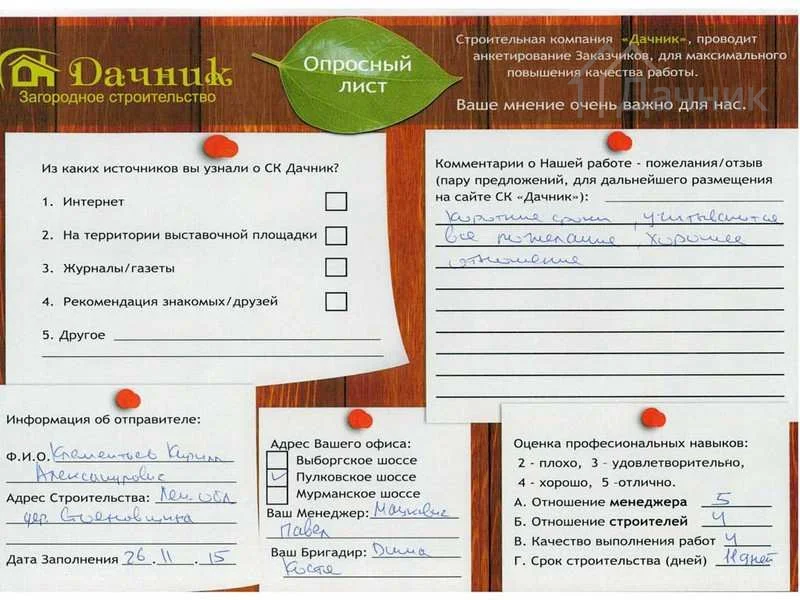 Дачник
Загородное строительство
Опросный
лист
Строительная компания «Дачник», проводит
анкетирование Заказчиков, для максимального
повышения качества работы.
Ваше мнение очень важно для нас.
Дачник
Из каких источников вы узнали о СК Дачник?
1. Интернет
2. На территории выставочной площадки
3. Журналы/газеты
4. Рекомендация знакомых/друзей
5. Другое
Комментарии о Нашей работе - пожелания/отзыв
(пару предложений, для дальнейшего размещения
на сайте СК «Дачник»):
Короткие сроки, учитываются
все пожелание, хорошее
отношение
Информация об отправителе:
Ф.И.О. Клементьев Кирилл
Александрович
Адрес Строительства: Лен обл
дер.
Дата Заполнения 26.11.15
Адрес Вашего офиса:
Выборгское шоссе
Пулковское шоссе
Мурманское шоссе
Ваш Менеджер: Мацкевич
Павел
Ваш Бригадир: Дима
Костя
Оценка професиональных навыков:
2 - плохо, 3 - удовлетворительно,
4 - хорошо, 5 -отлично.
А. Отношение менеджера 5
Б. Отношение строителей 4
В. Качество выполнения работ 4
Г. Срок строительства (дней) 11 дней